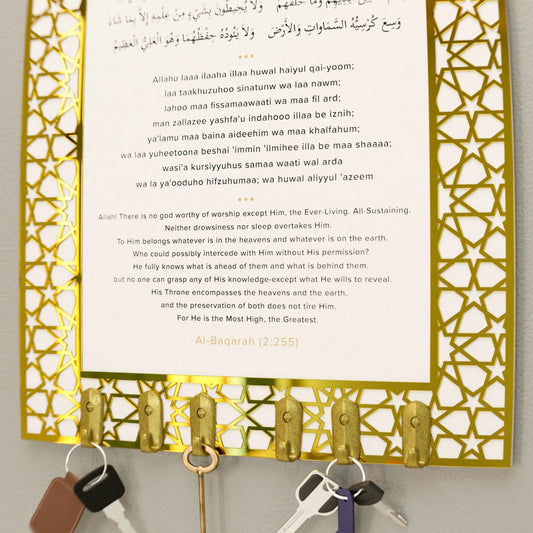 وَلَا يُحِيطُونَ بِشَيْءٍ مِنْ عِلْمِهِ إِلَّا بِمَا شَاءَ
وَسِعَ كُرْسِيُّهُ السَّمَاوَاتِ وَالْأَرْضَ وَلَا يَئُودُهُ حِفْظُهُمَا وَهُوَ الْعَلِيُّ الْعَظِيمُ
Allahu laaa ilaaha illaa huwal haiyul qai-yoom;
laa taakhuzuhoo sinatunw wa laa nawm;
lahoo maa fissamaawaati wa maa fil ard;
man zallazee yashfa'u indahooo illaa be iznih;
ya'lamu maa baina aideehim wa maa khalfahum;
wa laa yuheetoona beshai 'immin 'ilmihee illa be maa shaaaa;
wasi'a kursiyyuhus samaa waati wal arda
wa la ya'ooduho hifzuhumaa; wa huwal aliyyul 'azeem
Allah! There is no god worthy of worship except Him, the Ever-Living. All-Sustaining.
Neither drowsiness nor sleep overtakes Him.
To Him belongs whatever is in the heavens and whatever is on the earth.
Who could possibly intercede with Him without His permission?
He fully knows what is ahead of them and what is behind them.
but no one can grasp any of His knowledge-except what He wills to reveal.
His Throne encompasses the heavens and the earth.
and the preservation of both does not tire Him.
For He is the Most High, the Greatest.
Al-Baqarah (2:255)